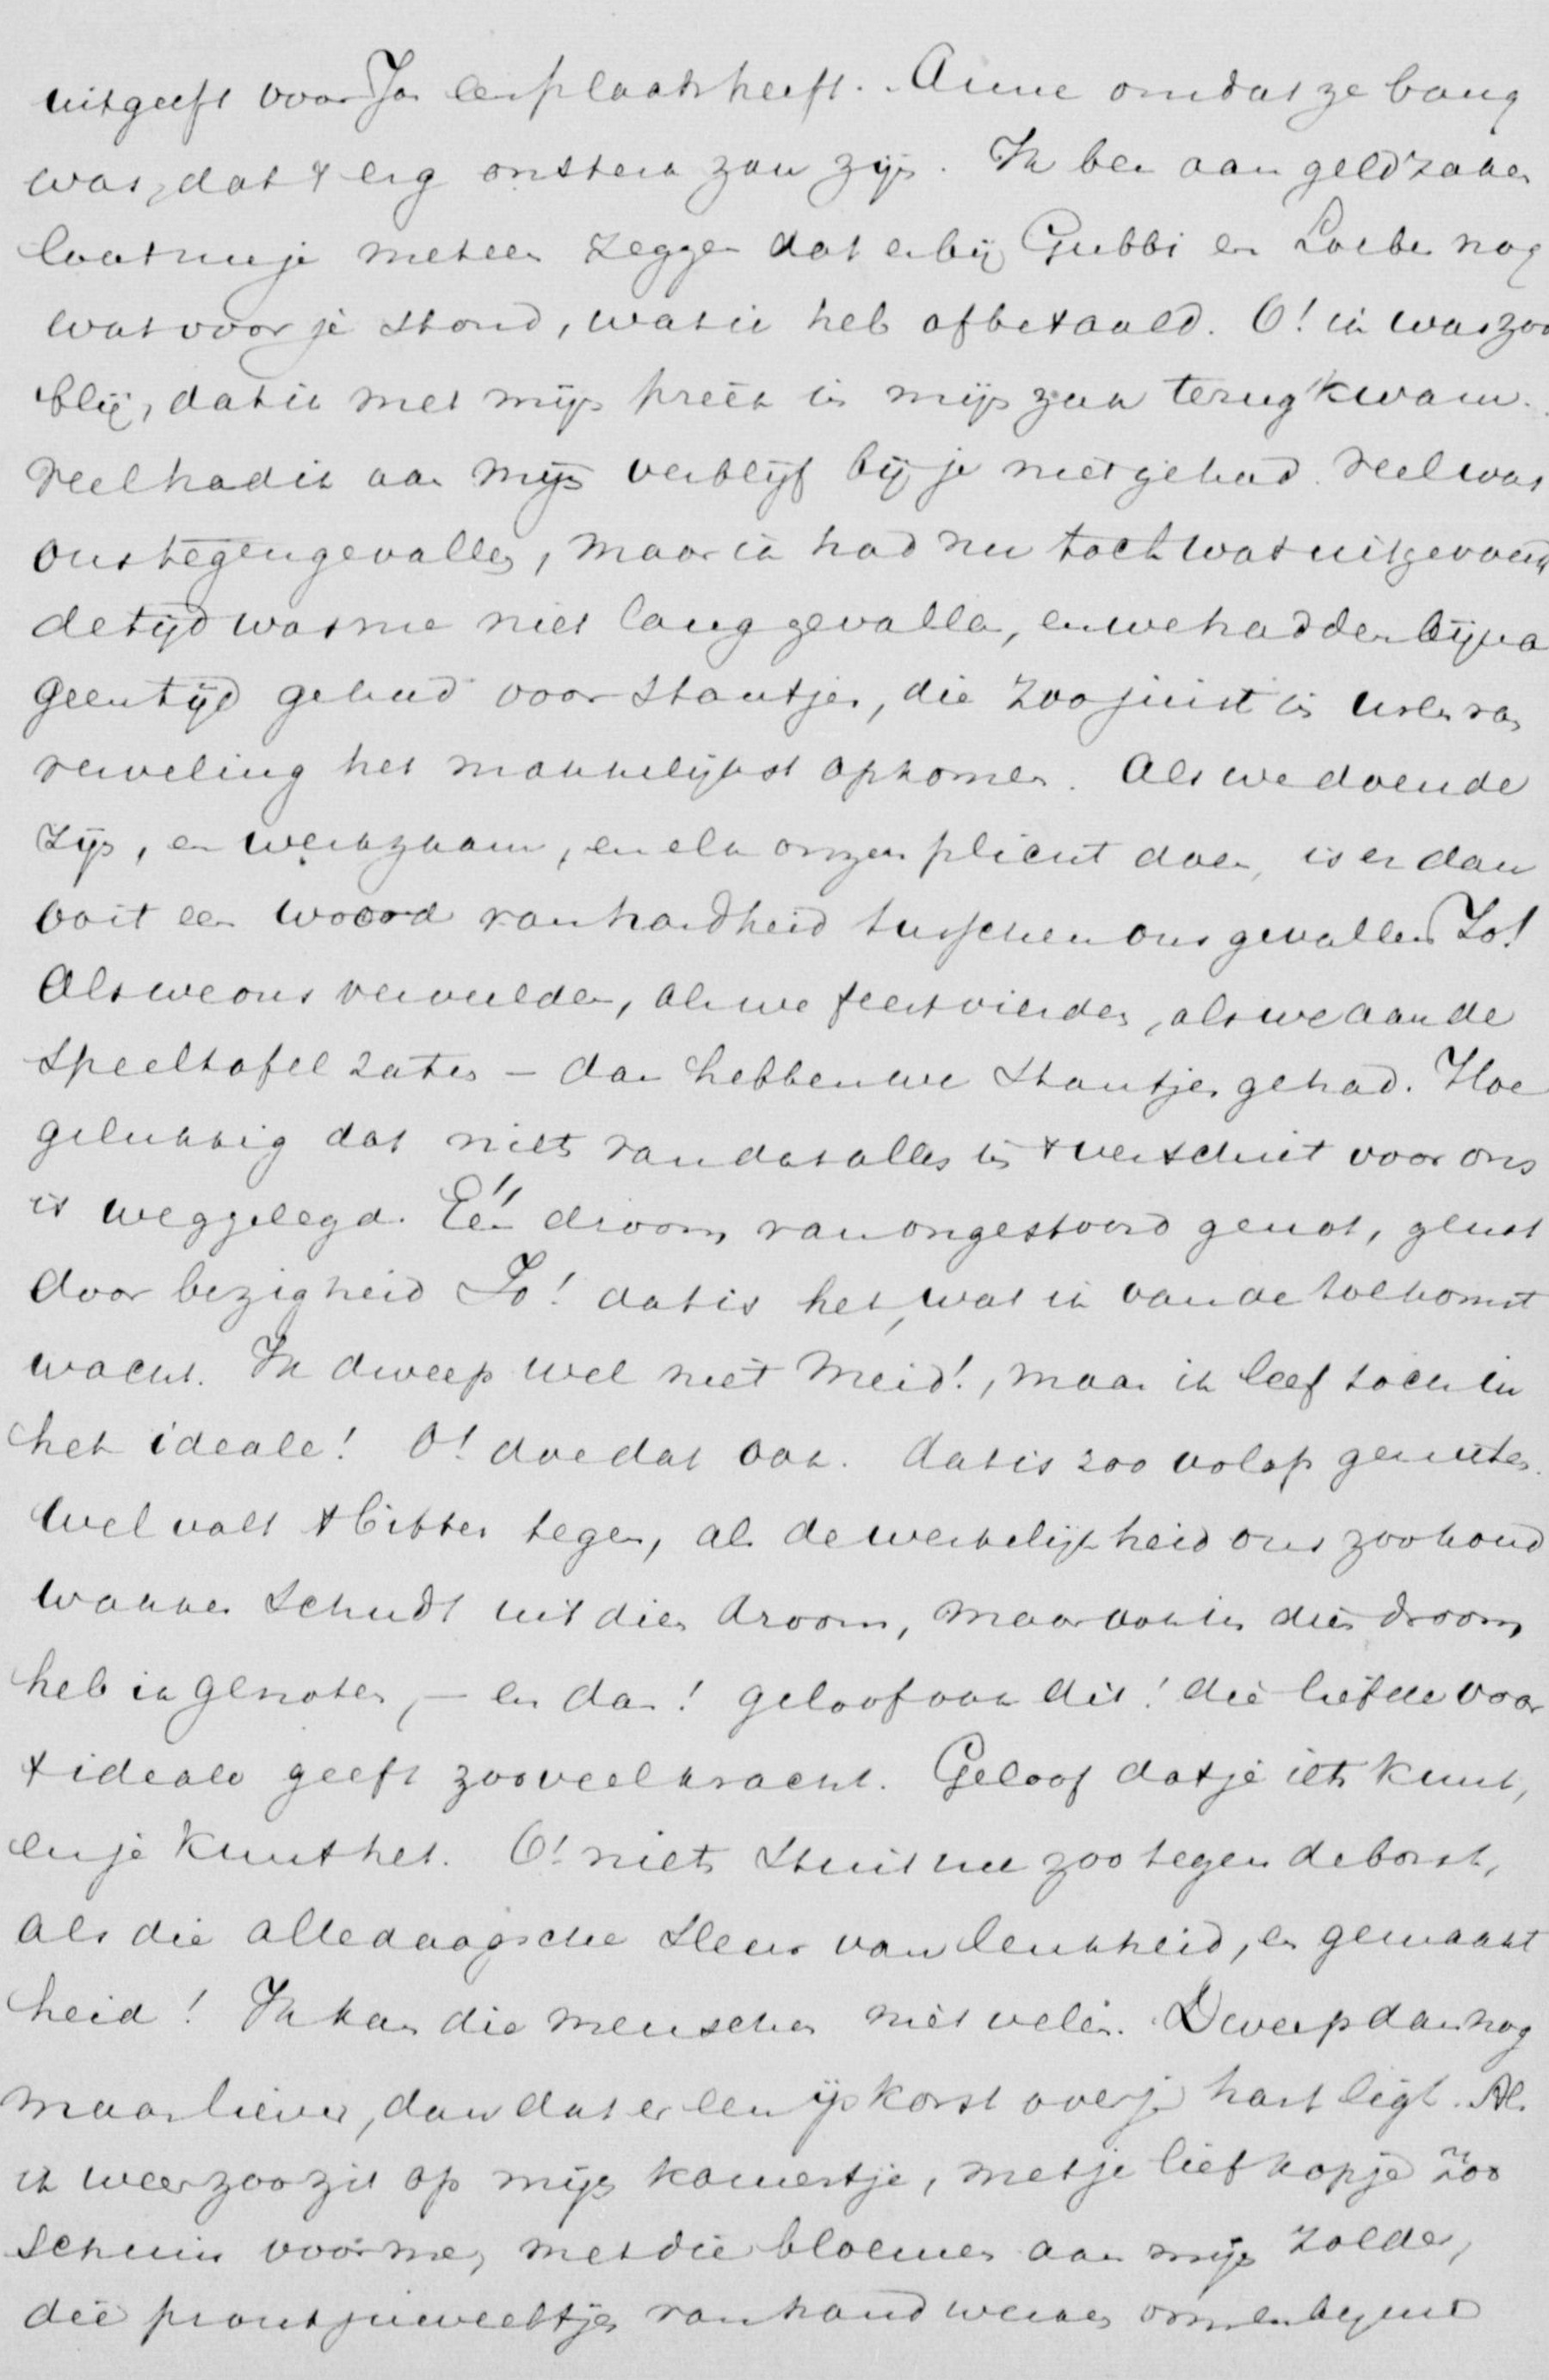 uitgeeft voor Jo een plaats heeft. Anne omdat ze bang
was, dat 't erg onsterk zou zijn. Ik ben aan geldzaken
laat me je meteen zeggen dat er bij Gubbi en Loeber nog
wat voor je stond, wat ik heb afbetaald. O! ik was zoo
blij, dat ik met mijn preek in mijn zak terug kwam.
Veel had ik aan mijn verblijf bij je niet gehad. Veel was
ons tegengevallen, maar ik had nu toch wat uitgevoerd
de tijd was me niet lang gevallen, en we hadden bijna
geen tijd gehad voor standjes, die zoo juist in uren van
verveling het makkelijkst opkomen. Als we doende
zijn, en werkzaam, en elk onzen plicht doen, is er dan
ooit een woord van hardheid tusschen ons gevallen Jo!
Als we ons verveelden, als we feestvierden, als we aan de
speeltafel zaten – dan hebben we standjes gehad. Hoe
gelukkig dat niets van dat alles in 't verschiet voor ons
is weggelegd. Eén droom van ongestoord genot, genot
door bezigheid Jo! dat is het, wat ik van de toekomst
wacht. Ik dweep wel niet meid!, maar ik leef toch in
het ideale! O! doe dat ook. dat is zoo volop genieten.
Wel valt 't bitter tegen, als de werkelijkheid ons zoo koud
wakker schudt uit dien droom, maar ook in dien droom
heb ik genoten, – en dan! geloof ook dit! die liefde voor
't ideale geeft zooveel kracht. Geloof dat je iets kunt,
en je kunt het. O! niets stuit me zoo tegen de borst,
als die alledaagsche sleur van leukheid, en gemaakt
heid! Ik kan die menschen niet velen. Dweep dan nog
maar liever, dan dat er een ijskorst over je hart ligt. Als
ik weer zoo zit op mijn kamertje, met je lief kopje zoo
schuin voor me, met die bloemen aan mijn zolder,
die pronkjuweeltjes van handwerken om en bij me